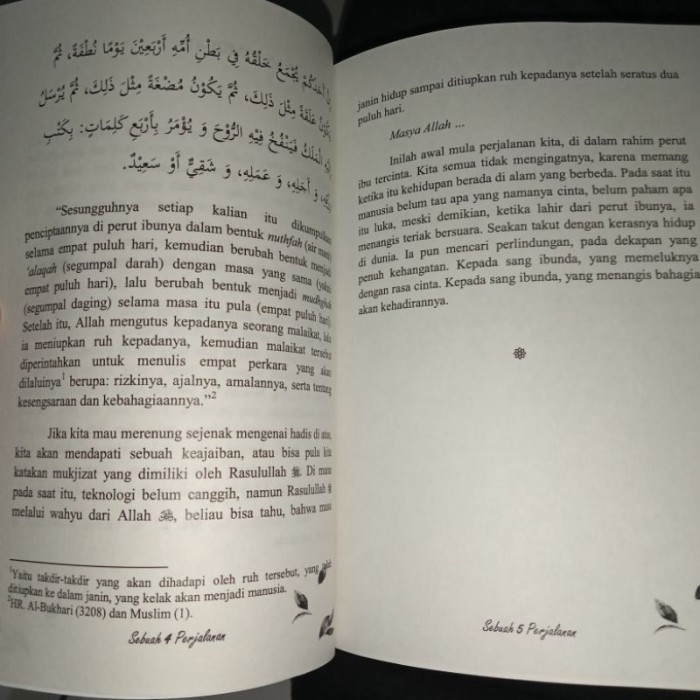 أَحَدَكُمْ يُجْمَعُ خَلْقُهُ فِي بَطْنِ أُمِّهِ أَرْبَعِيْنَ يَوْمًا نُطْفَةً، ثُمَّ
يَكُوْنُ عَلَقَةً مِثْلَ ذَلِكَ، ثُمَّ يَكُوْنُ مُضْغَةً مِثْلَ ذَلِكَ، ثُمَّ يُرْسَلُ
الْمَلَكُ فَيَنْفُخُ فِيْهِ الرُّوْحَ وَ يُؤْمَرُ بِأَرْبَعِ كَلِمَاتٍ: بِكَتْبِ
وَ أَجَلِهِ، وَ عَمَلِهِ، وَ شَقِيٌّ أَوْ سَعِيْدٌ.
"Sesungguhnya setiap kalian itu dikumpulkan
penciptaannya di perut ibunya dalam bentuk nuthfah (air
selama empat puluh hari, kemudian berubah bentuk menjadi
'alaqah (segumpal darah) dengan masa yang sama (yakni
empat puluh hari), lalu berubah bentuk menjadi mudhghah
(segumpal daging) selama masa itu pula (empat puluh hari).
Setelah itu, Allah mengutus kepadanya seorang malaikat, lalu
ia meniupkan ruh kepadanya, kemudian malaikat tersebut
diperintahkan untuk menulis empat perkara yang akan
dilaluinya¹ berupa: rizkinya, ajalnya, amalannya, serta tentang
kesengsaraan dan kebahagiaannya."²
Jika kita mau merenung sejenak mengenai hadis di atas,
kita akan mendapati sebuah keajaiban, atau bisa pula kita
katakan mukjizat yang dimiliki oleh Rasulullah ﷺ. Di mana
pada saat itu, teknologi belum canggih, namun Rasulullah ﷺ
melalui wahyu dari Allah ﷻ, beliau bisa tahu, bahwa
¹Yaitu takdir-takdir yang akan dihadapi oleh ruh tersebut, yang
ditiupkan ke dalam janin, yang kelak akan menjadi manusia.
²HR. Al-Bukhari (3208) dan Muslim (1).
Sebuah 4 Perjalanan
janin hidup sampai ditiupkan ruh kepadanya setelah seratus dua
puluh hari.
Masya Allah ...
Inilah awal mula perjalanan kita, di dalam rahim perut
ibu tercinta. Kita semua tidak mengingatnya, karena memang
ketika itu kehidupan berada di alam yang berbeda. Pada saat itu
manusia belum tau apa yang namanya cinta, belum paham apa
itu luka, meski demikian, ketika lahir dari perut ibunya, ia
menangis teriak bersuara. Seakan takut dengan kerasnya hidup
di dunia. Ia pun mencari perlindungan, pada dekapan yang
penuh kehangatan. Kepada sang ibunda, yang memeluknya
dengan rasa cinta. Kepada sang ibunda, yang menangis bahagia
akan kehadirannya.
Sebuah 5 Perjalanan